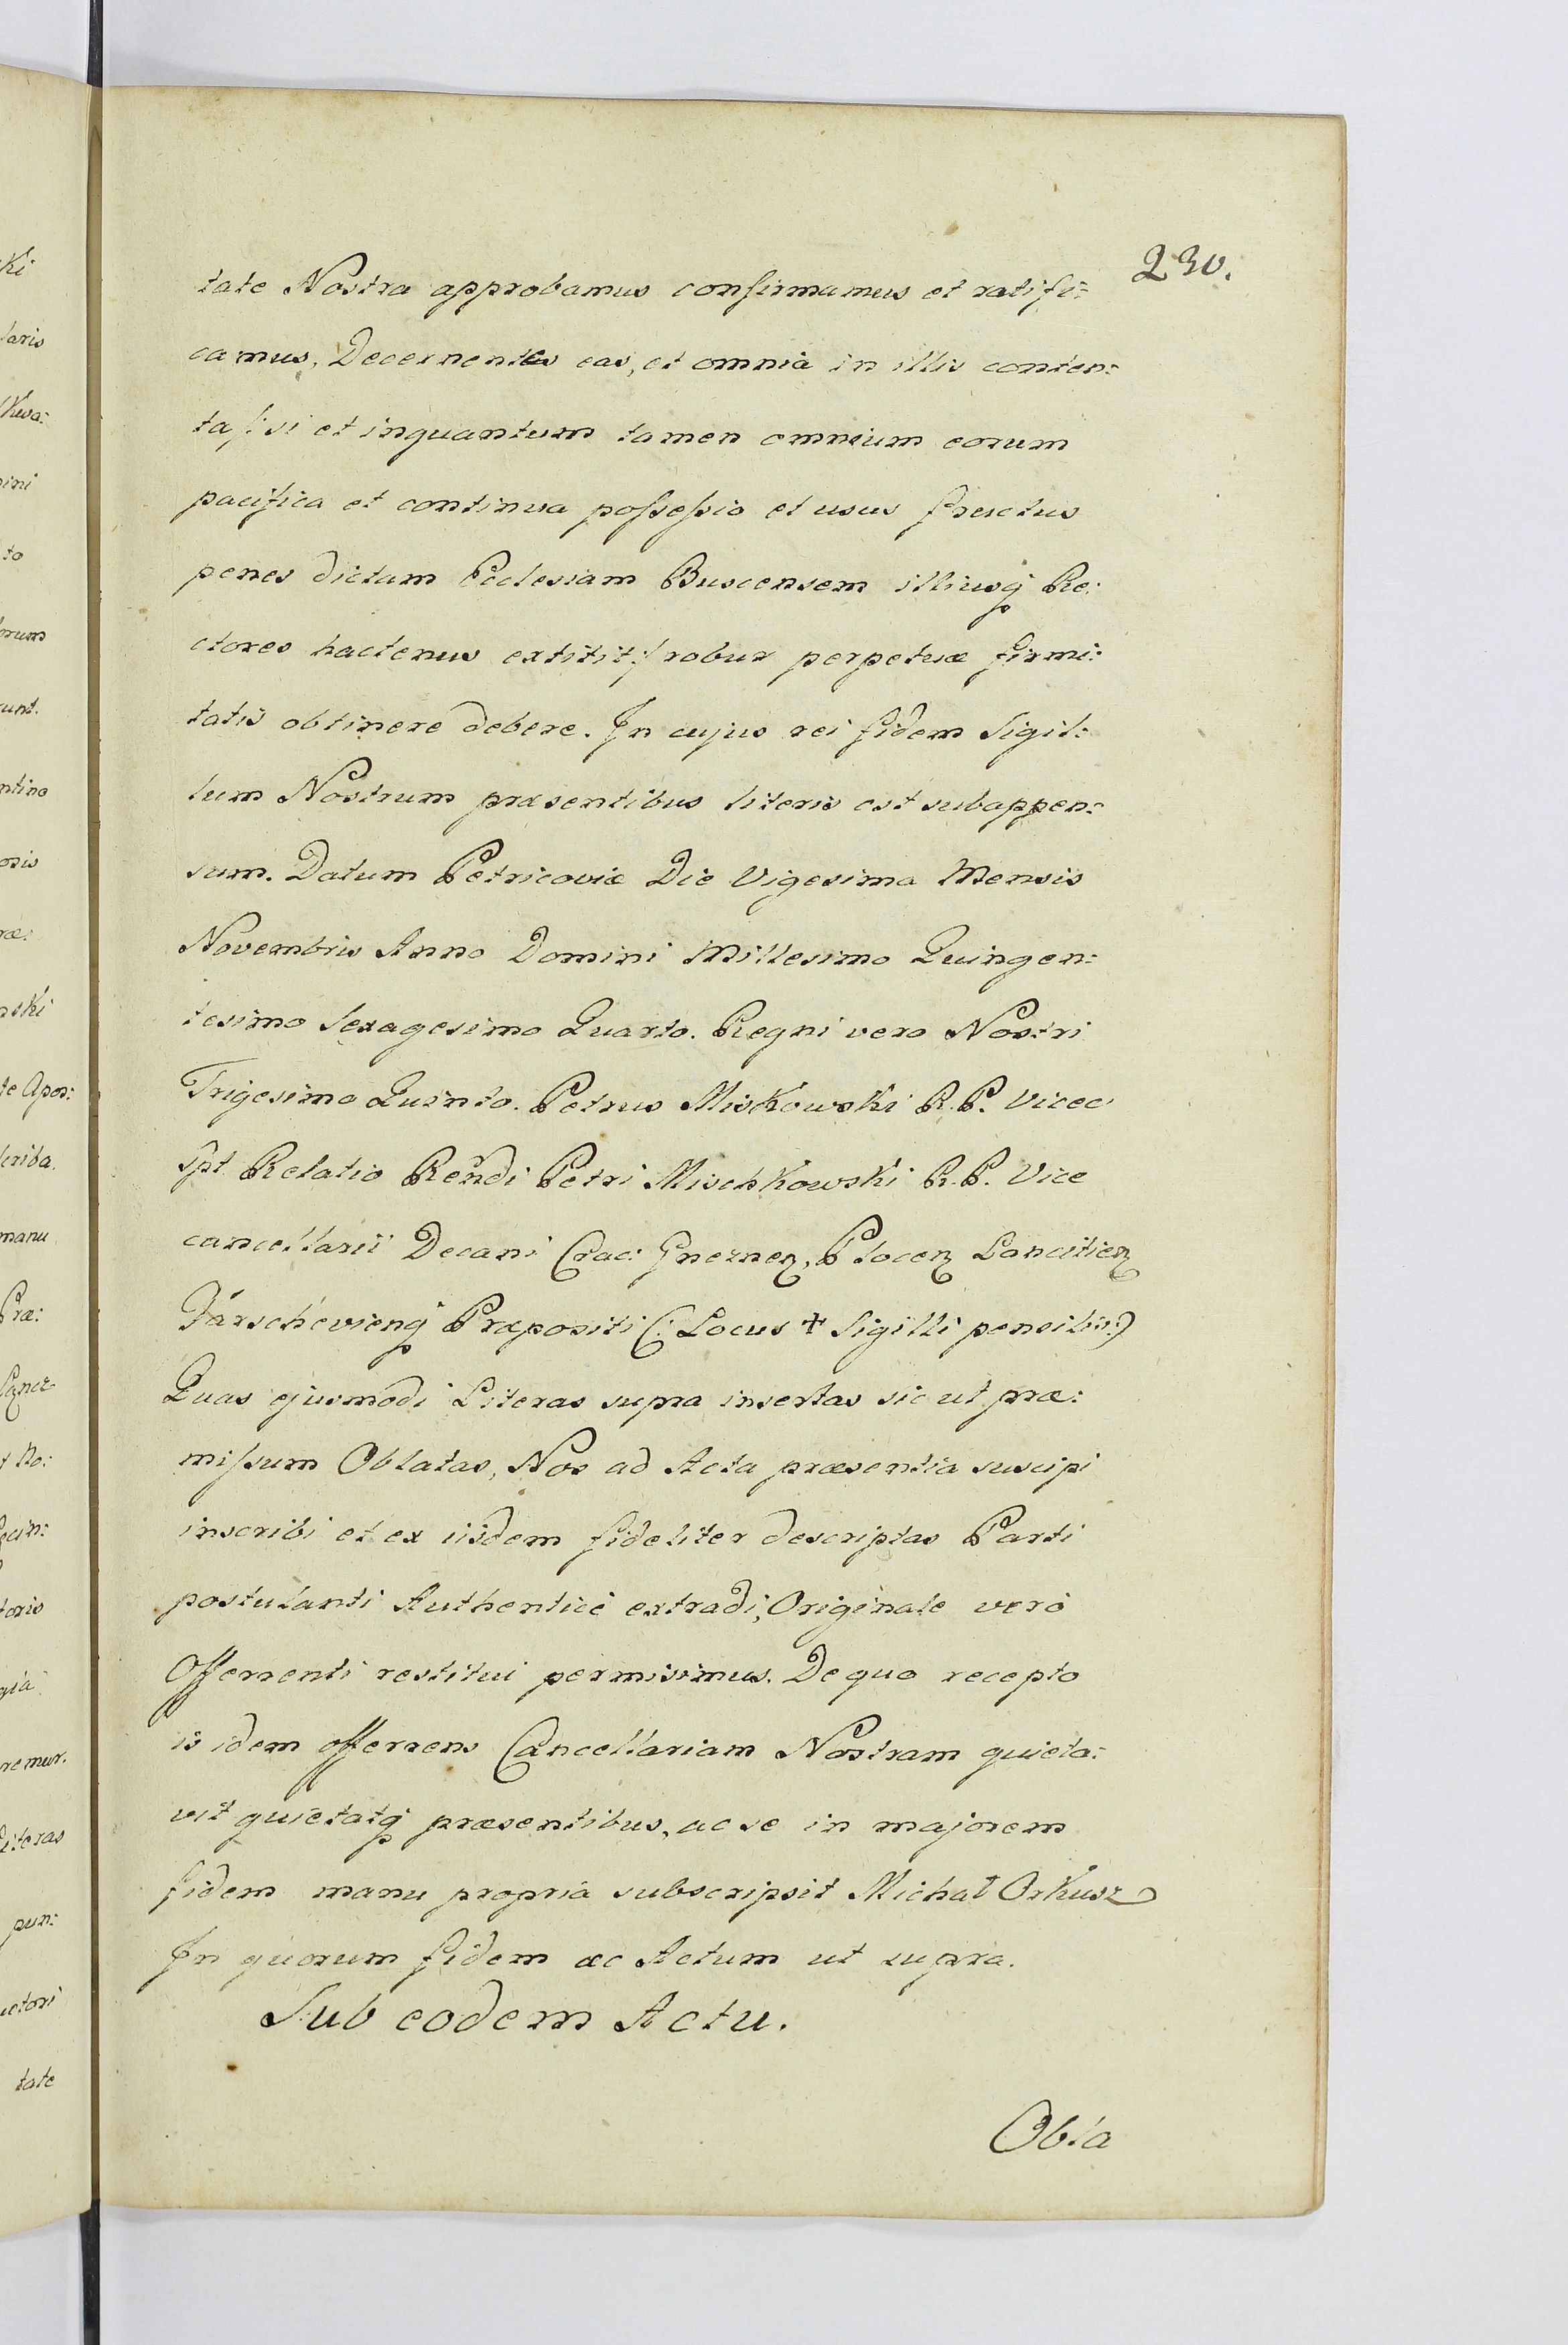 230.
tate Nostra approbamus confirmamus et ratifi:
camus, Decernentes eas, et omnia in illis conten:
ta /: si et inquantum tamen omnium eorum
pacifica et continua possessio et usus fructus
penes dictam Ecclesiam Buscensem illiusq Re:
ctores hactenus extitit :/ robur perpetuæ firmi:
tatis obtinere debere. In cujus rei fidem Sigil:
lum Nostrum præsentibus literis est subappen:
sum. Datum Petricoviæ Die Vigesima Mensis
Novembris Anno Domini Millesimo Quingen:
tesimo Sexagesimo Quarto. Regni vero Nostri
Trigesimo Quinto. Petrus Miskowski R. P. Vicec
spt Relatio Rendi Petri Mischkowski R. P. Vice
cancellarii Decani Crac: Gneznen, Plocen Lancitien
Varschevienq Præpositi (: Locus + Sigilli pensilis:)
Quas ejusmodi Literas supra insertas sic ut præ:
missum Oblatas, Nos ad Acta præsentia suscipi
inscribi et ex iisdem fideliter descriptas Parti
postulanti Authenticè extradi, Originale verò
Offerrenti restitui permisimus. De quo recepto
is idem offerrens Cancellariam Nostram quieta:
vit quietatq præsentibus, ac se in majorem
fidem manu propria subscripsit Michał Orkusz
In quorum fidem ac Actum ut supra.
Sub eodem Actu.
Obla
ki
laris
ini
to
orum
runt.
ntino
osis
ræ:
nski
te Apos:
scriba.
manu
Præ:
t No:
toris
gia
remur.
Literas
pun:
uctori
tate